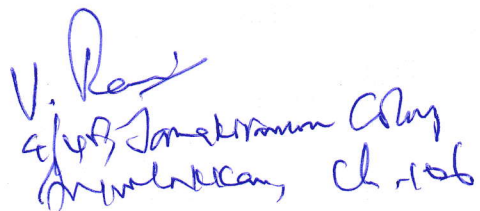 V. Ravi
4/48, Janakiraman Colony
Arumbakkam, Ch-106